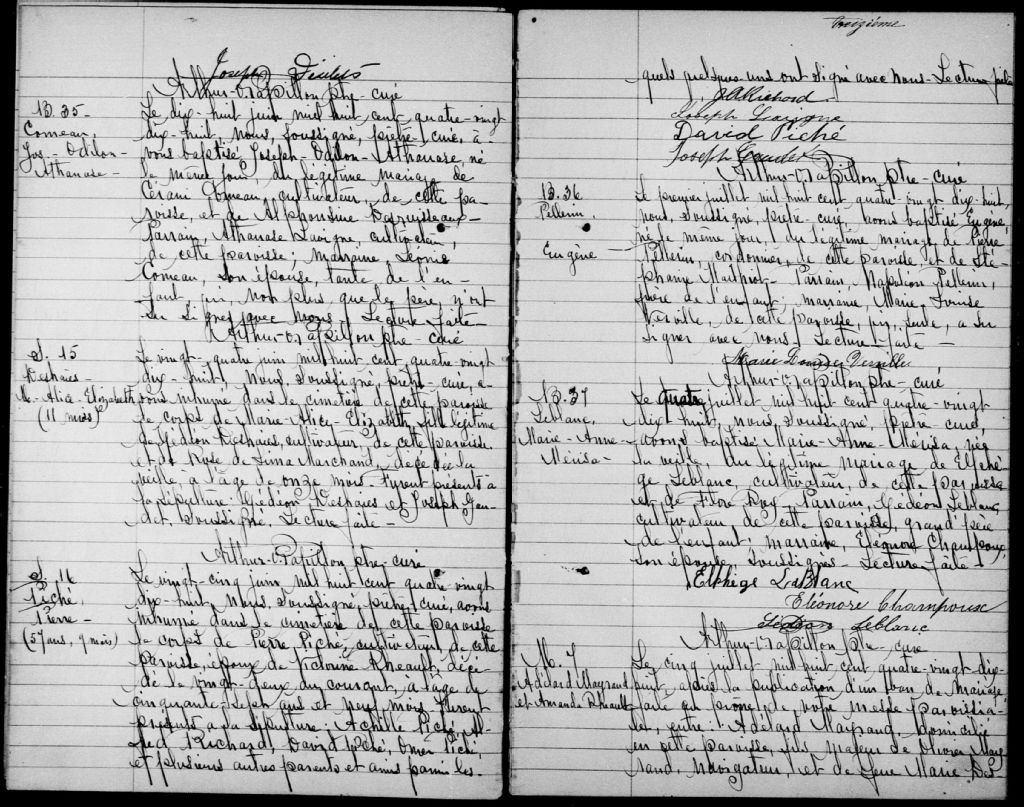 Joseph
Arthur O. Papillon ptre-curé
B. 35
Comeau,
Jos.-Odilon-
Athanase-
Le dix-huit juin mil huit cent quatre-vingt
dix-huit, Nous, soussigné, prêtre, curé, a-
vons baptisé Joseph-Odilon-Athanase, né
le même jour, du légitime mariage de
Comeau, cultivateur, de cette pa-
roisse, et de Alphonsine
Parrain, Athanase Lavigne, cultivateur,
de cette paroisse; marraine, Léonie
Comeau, son épouse, tante de l'en-
fant, qui, non plus que le père, n'ont
su signer avec nous. Lecture faite-
Arthur O. Papillon ptre-curé
S. 15
Deshaies
M.-Alice-Elizabeth
(11 mois)
Le vingt-quatre juin mil huit cent quatre-vingt
dix-huit, Nous, soussigné, prêtre, curé, a-
vons inhumé dans le cimetière de cette paroisse
le corps de Marie-Alice-Elizabeth, fille légitime
de Gédéon Deshaies, cultivateur, de cette paroisse
et de Rose de Lima Marchand, décédée la
veille, à l'âge de onze mois. Furent présents à
la sépulture: Gédéon Deshaies et Joseph Gau-
det, soussigné, Lecture faite-
Arthur O. Papillon ptre-curé
S. 16
Piché,
Pierre-
(57 ans, 9 mois)
Le vingt-cinq juin, mil huit cent quatre-vingt
dix-huit, Nous, soussigné, prêtre, curé, avons
inhumé dans le cimetière de cette paroisse
le corps de Pierre Piché, cultivateur, de cette
paroisse, époux de Victorine Rheault, décé-
dé le vingt-deux du courant, à l'âge de
cinquante-sept ans et neuf mois. Furent
présents à la sépulture: Achille Piché, Al-
fred Richard, David Piché, Omer Piché,
et plusieurs autres parents et amis parmi les-
treizième
quels quelques uns ont signé avec nous. Lecture faite
Richard
Joseph Lavigne
David Piché
Joseph Gaudet
Arthur O. Papillon ptre-curé
B. 36
Pellerin,
Eugène
Le premier juillet mil huit cent quatre-vingt dix-huit,
nous, soussigné, prêtre-curé, avons baptisé Eugène,
né le même jour, du légitime mariage de Pierre
Pellerin, cordonnier, de cette paroisse et de Sté-
phanie Parrain, Napoléon Pellerin,
frère de l'enfant; marraine, Marie Louise
Verville, de cette paroisse, qui, seule, a su
signer avec nous. Lecture faite-
Marie Louise Verville
Arthur O. Papillon ptre-curé
B. 37
Leblanc,
Marie-Anne-
Mérisa-
Le quatre juillet mil huit cent quatre-vingt
dix-huit, nous, soussigné, prêtre, curé,
avons baptisé Marie-Anne-Mérisa, née
la veille, du légitime mariage de Elphè-
ge Leblanc, cultivateur, de cette paroisse
et de Flore Roy. Parrain, Gédéon Leblanc,
cultivateur de cette paroisse, grand'père
de l'enfant; marraine, Eléonore Champoux,
son épouse, soussignés- Lecture faite-
Elphège LeBlanc
Eléonore Champoux
Gédéon Leblanc
Arthur O. Papillon ptre-curé
M. 7
Adélard Mayrand
et Amanda Rheault
Le cinq juillet mil huit cent quatre-vingt-dix-
huit, après la publication d'un ban de mariage
faite au prône de notre messe paroissia-
le, entre: Adélard Mayrand, domicilié
en cette paroisse, fils majeur de Olivier May-
rand, navigateur, et de feue Marie